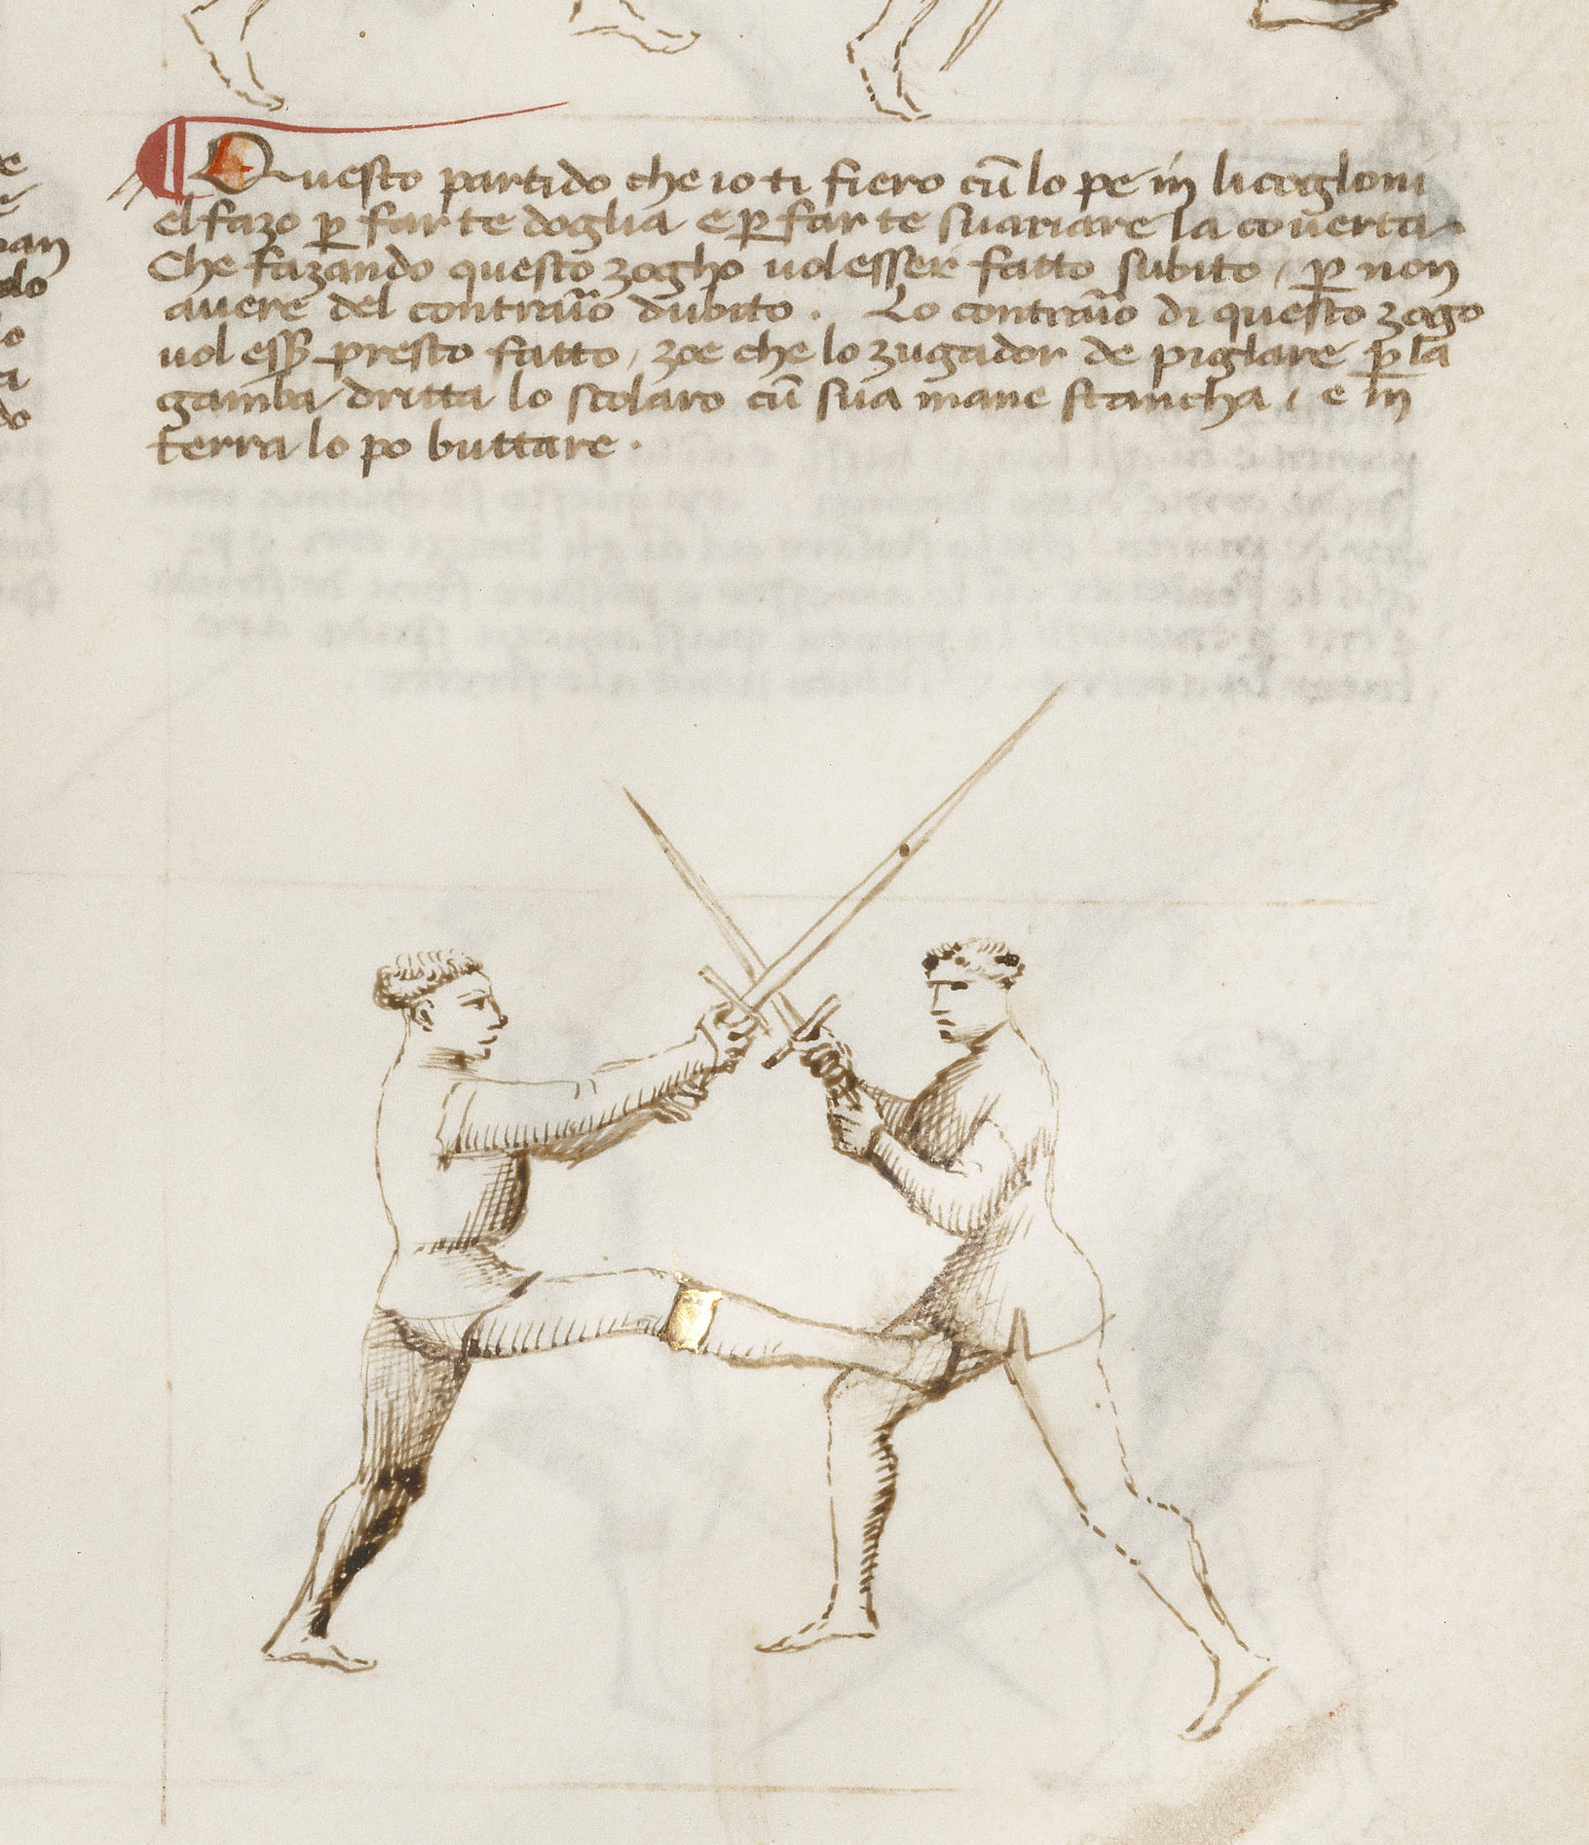 Questo partido che io ti fiero cū lo pe in li coglioni
el fazo p̱ farte doglia e p̱ far te suariare la couerta.
Che fazando questo zogho uol esser fatto subito, p̱ non
auere del contrario dubito. Lo contrario di questo zogo
uol ess̱ presto fatto, zoe che lo zugador de piglare p̱ la
gamba dritta lo scolaro cū sua mane stancha, e in
terra lo po buttare.